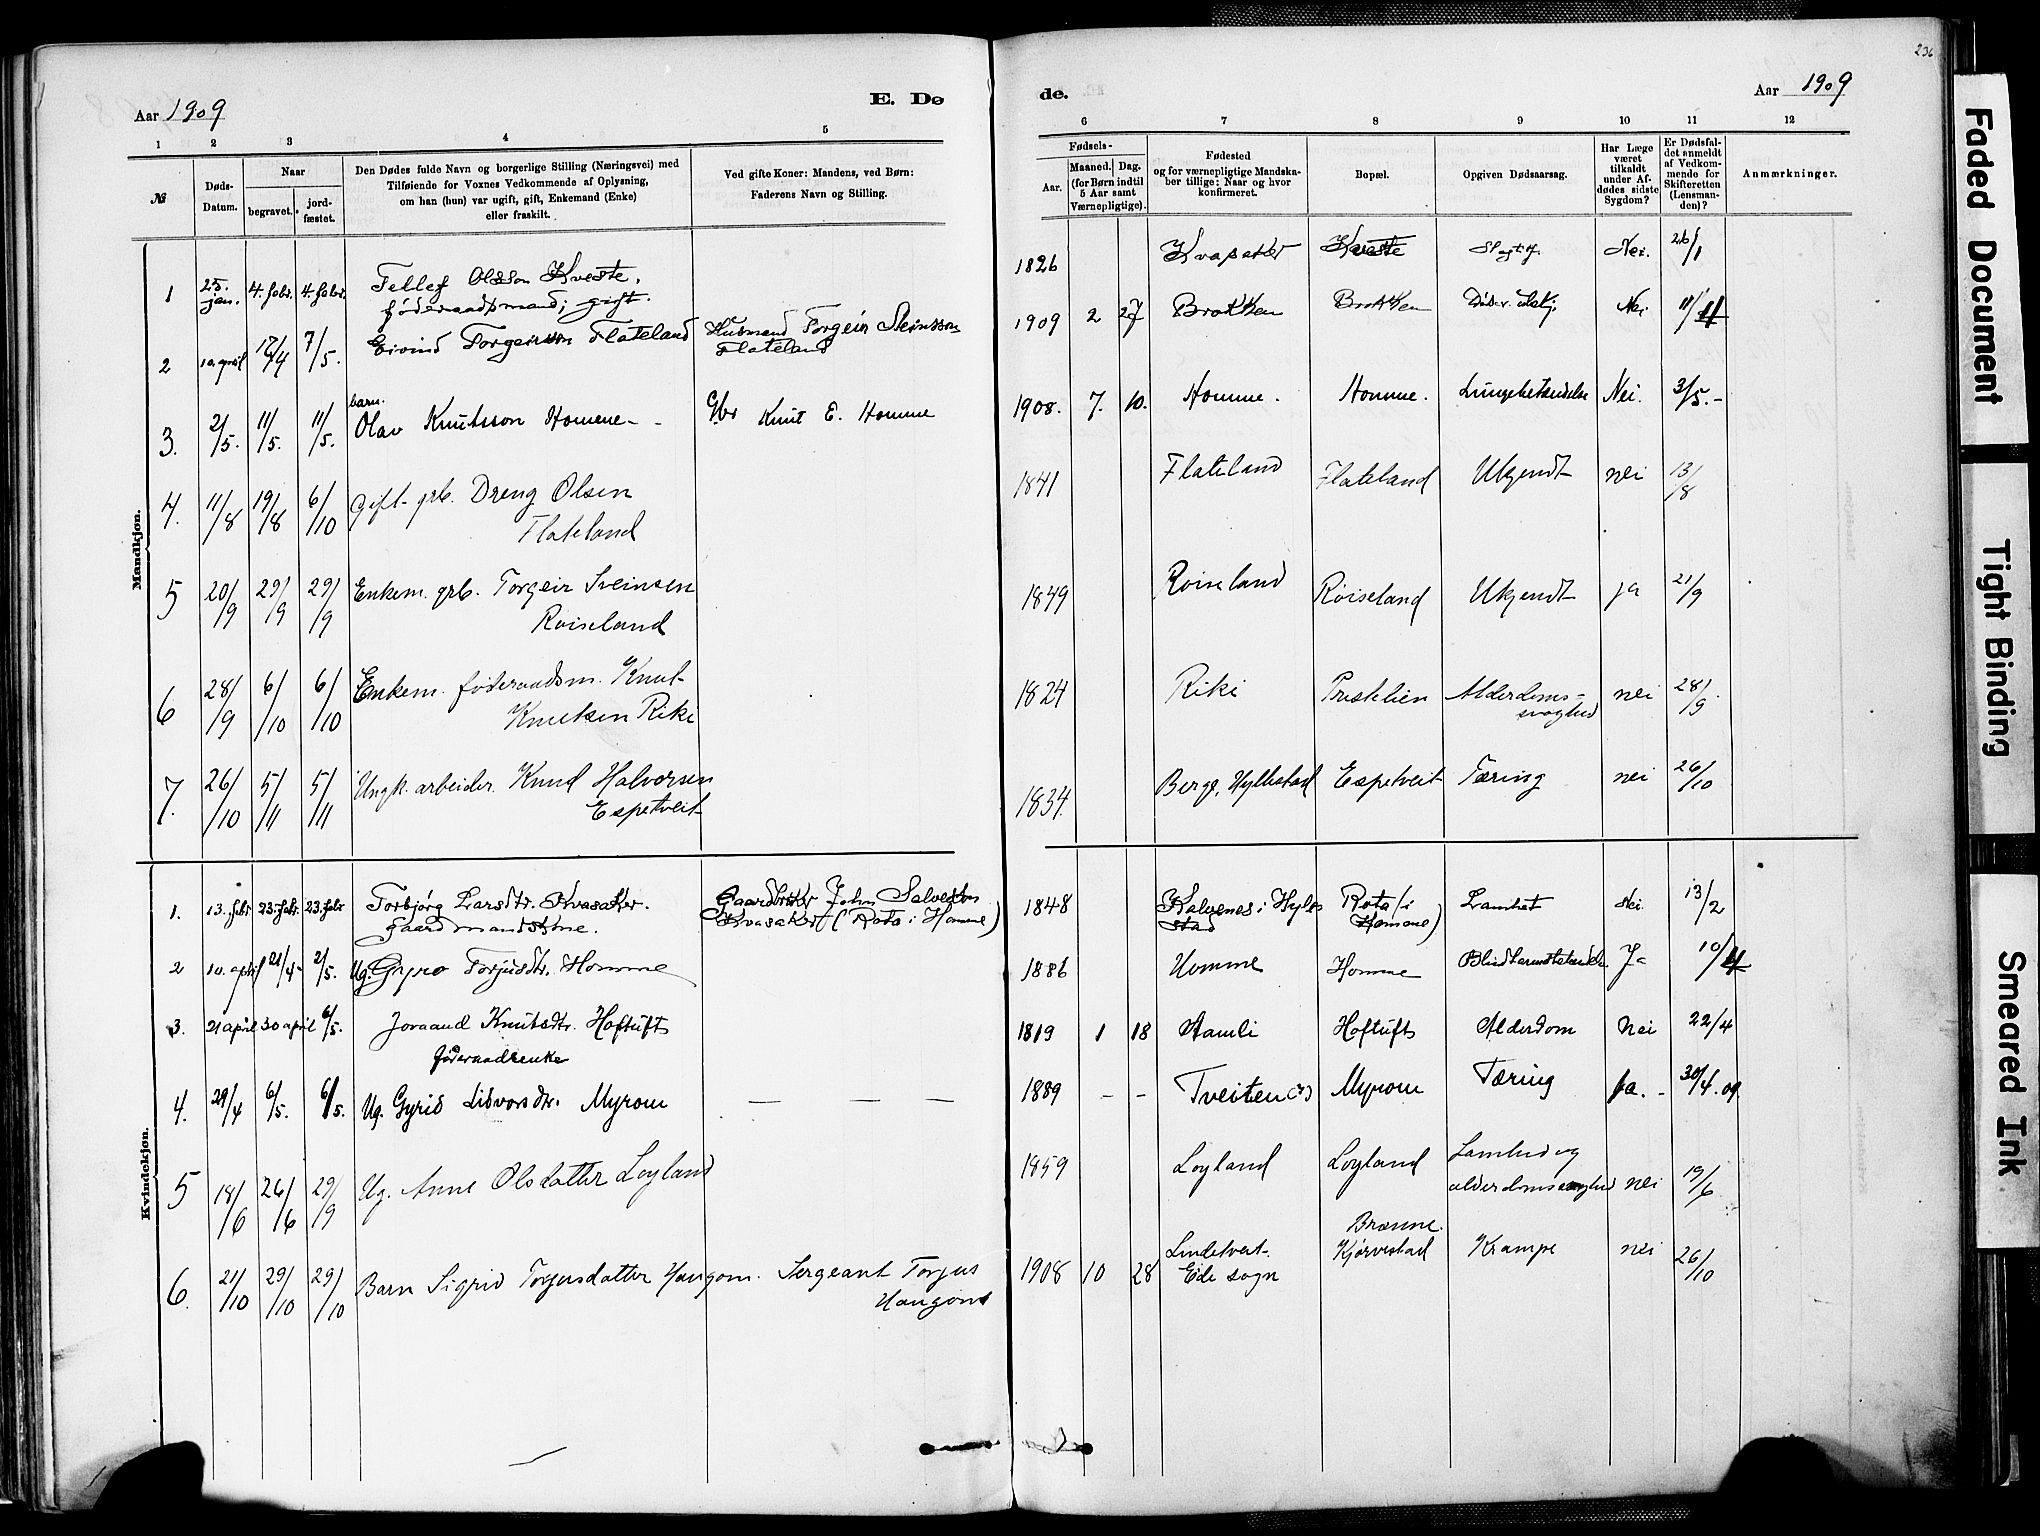 236
Aar 1909
E. Dø
de.
Aar 1909
1 2 3 4 5
6 7 8 9 10 11 12
№
Døds-
Datum.
Naar
begravet.
jord-
fæstet.
Den Dødes fulde Navn og borgerlige Stilling (Næringsvei) med
Tilføiende for Voxnes Vedkommende af Oplysning,
om han (hun) var ugift, gift, Enkemand (Enke)
eller fraskilt.
Ved gifte Koner: Mandens, ved Børn:
Faderens Navn og Stilling.
Fødsels-
Aar.
Maaned.
Dag.
(for Børn indtil
5 Aar samt
Værnepligtige).
Fødested
og for værnepligtige Mandska-
ber tillige: Naar og hvor
konfirmeret.
Bopæl.
Opgiven Dødsaarsag.
Har Læge
været
tilkaldt
under Af-
dødes sidste
Sygdom?
Er Dødsfal-
det anmeldt
af Vedkom-
mende for
Skifteretten
(Lensman-
den)?
Anmærkninger.
Mandkjøn.
1 25. jan. 4. febr. 4. febr. Tellef Olsson Kveste, 1826 Kvasaker Kveste Nei. 26/1
føderaadsmand; gift.
2 10. april 17/4 7/5. Eivind Torgeirson Flateland Husmand Torgeir Steinsson 1909 2 27 Brokken Brokken Nei 11/4
Flateland
barn.
3. 2/5. 11/5. 11/5. Olav Knutsson Homme - - Gbr Knut E. Homme 1908. 7. 10. Homme. Homme. Lungebetændelse Nei. 3/5.-
4. 11/8 19/8 6/10 Gift grb. Dreng Olsen 1841 Flateland Flateland Ukjendt nei 13/8
Flateland
5 20/9 29/9 29/9 Enkem. grb. Torgeir Sveinsen 1849 Røiseland Røiseland Ukjendt ja 21/9
Røiseland
6 28/9 6/10 6/10 Enkem. føderaadsm. Knut 1824 Riki Prestelien Alderdoms- nei 28/9.
Knutsen Riki svaghed
7. 26/10 5/11 5/11 Ungk. arbeider Knud Halvorsen 1834. Berge, Hyllestad Espetveit Tæring nei 26/10
Espetveit
Kvindekjøn.
1. 13. febr 23. febr. 23. febr Torbjørg Larsdtr. Kvasaker. Gaardbruker John Salveson 1848 i Hyle- Rota (i Lamhet Nei 13/2
Gaardmandskone. Kvasaker (Rota i Homme) stad Homme)
2 10. april 21/4- 2/5. Ug. Gyro Torjusdtr. Homme 1886 Homme Homme Ja 10/4
3. 21 april 30 april 6/5. Joraand Knutsdtr. Hoftuft 1819 1 18 Aamli Hoftuft Alderdom Nei 22/4
føderaadsenke
4. 29/4 6/5. 6/5. Ug. Gyrid Lidvorsdtr. Myrom — — — 1889 - - Tveiten (?) Myrom Tæring ja. - 30/4.09
5 18/6 26/6 29/9 Ug. Anne Olsdatter Løyland 1859 Løyland Løyland Lamhed og
alderdomssvaghed nei 19/6
6. 21/10 29/10 29/10 Barn Sigrid Torjusdatter Haugom. Sergeant Torjus 1908 10 28 Lindetveit- Brænne. Kjørvestad Krampe nei 26/10
Haugom Eide sogn
Faded Document
Tight Binding
Smeared Ink